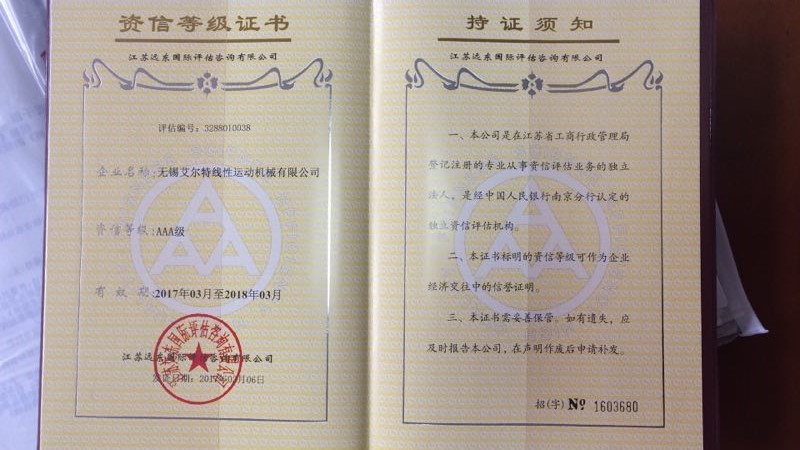 资信等级证书
江苏远东国际评估咨询有限公司
评估编号：3288010038
企业名称:无锡艾尔特线性运动机械有限公司
资信等级:AAA级
有效期:2017年03月至2018年03月
江苏远东国际评估咨询有限公司
持证须知
江苏远东国际评估咨询有限公司
一、本公司是在江苏省工商行政管理局
登记注册的专业从事资信评估业务的独立
法人，是经中国人民银行南京分行认定的
独立资信评估机构。
二、本证书标明的资信等级可作为企业
经济交往中的信誉证明。
三、本证书需妥善保管。如有遗失，应
及时报告本公司，在声明作废后申请补发。
招(字) № 1603680